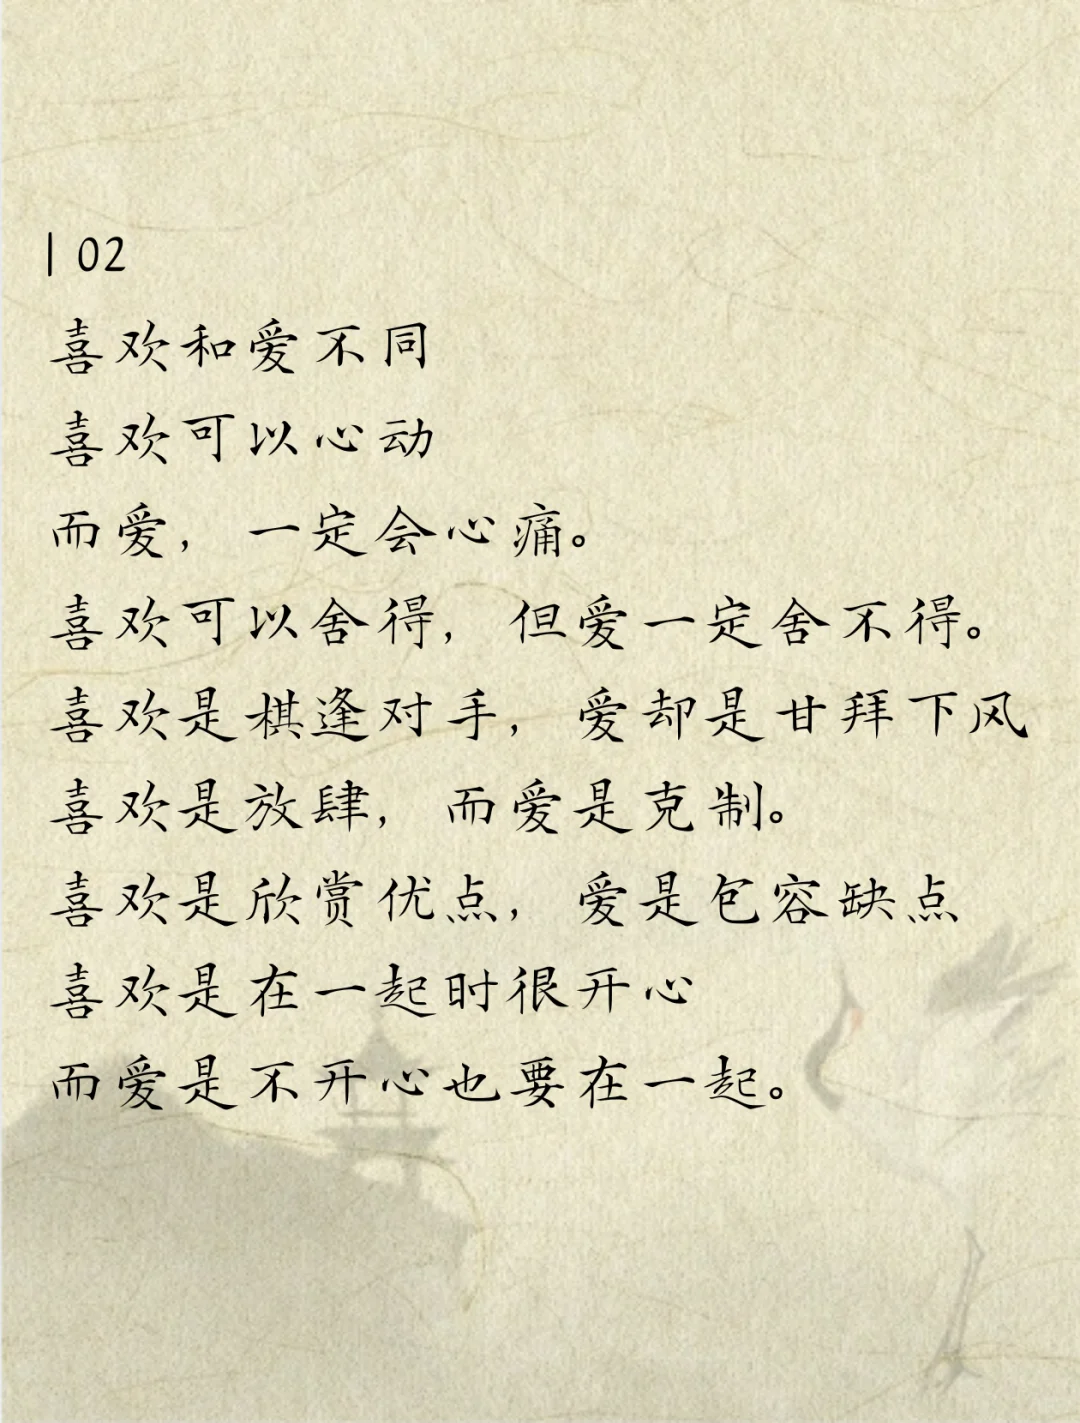 | 02
喜欢和爱不同
喜欢可以心动
而爱，一定会心痛。
喜欢可以舍得，但爱一定舍不得。
喜欢是棋逢对手，爱却是甘拜下风
喜欢是放肆，而爱是克制。
喜欢是欣赏优点，爱是包容缺点
喜欢是在一起时很开心
而爱是不开心也要在一起。